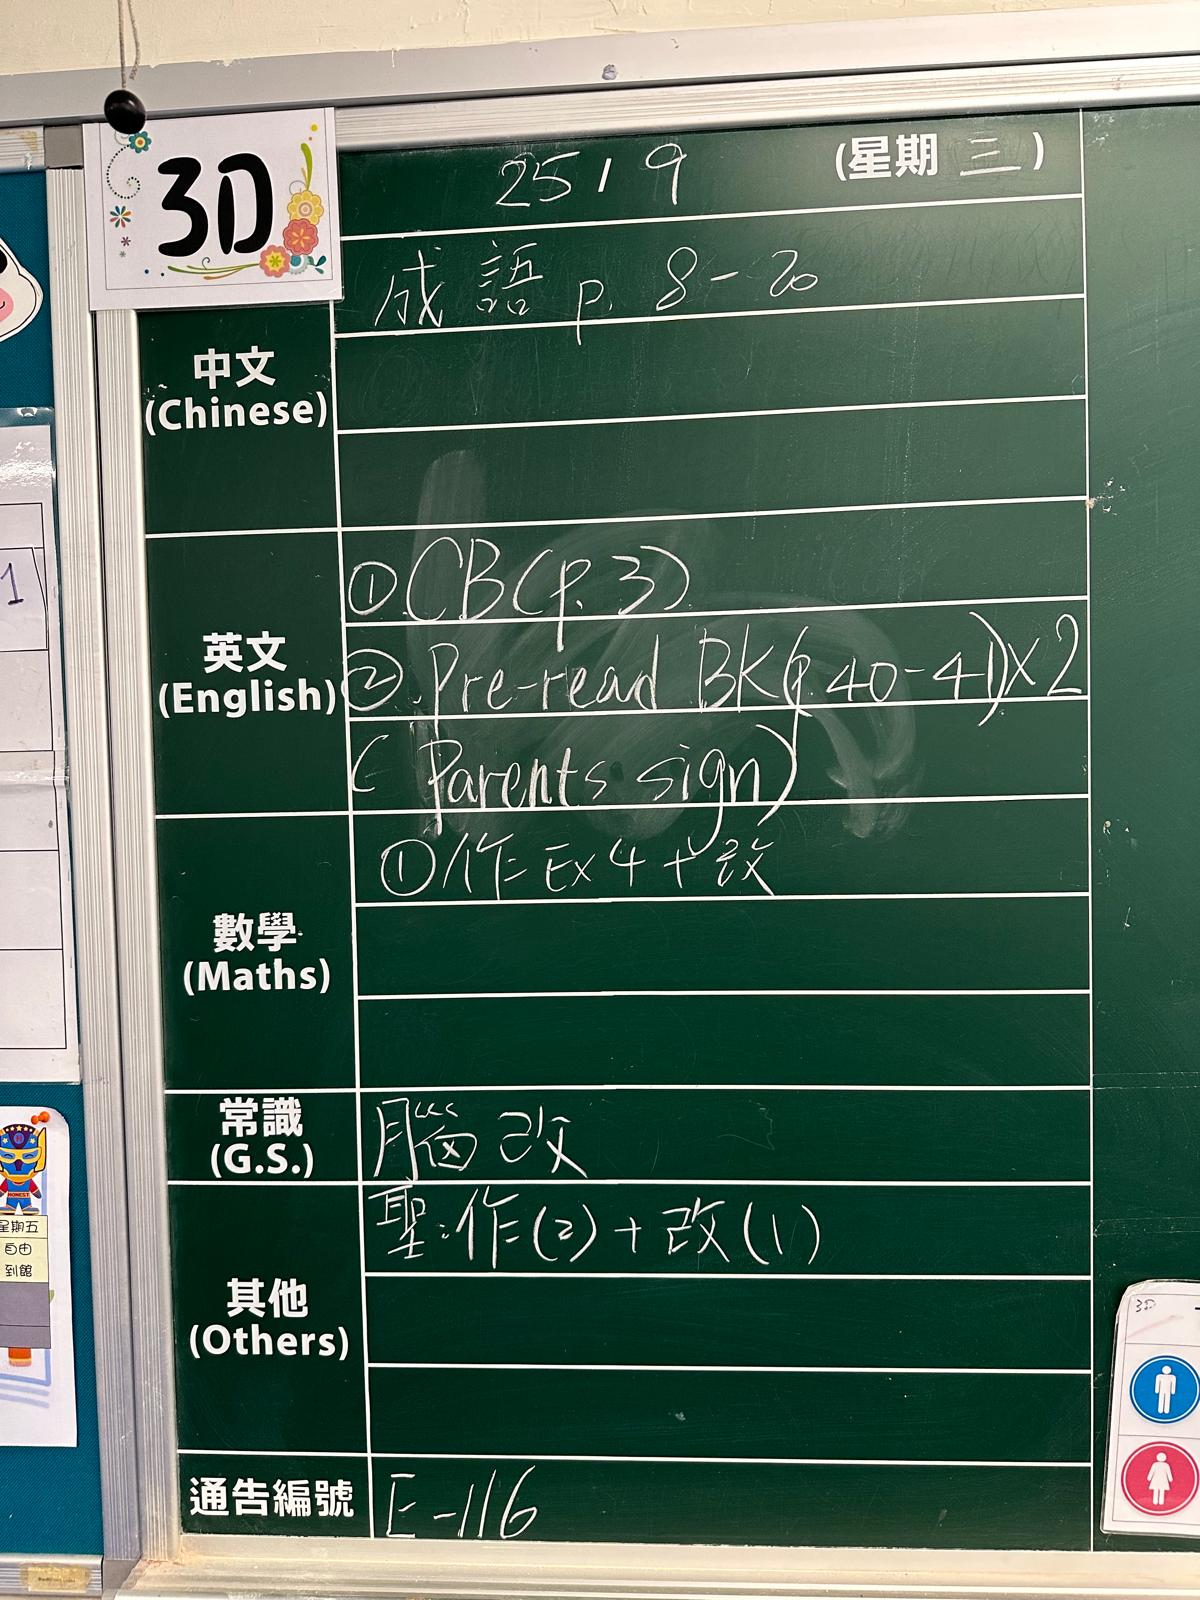 3D
25/9 (星期三)
成語 p. 8-20
中文
(Chinese)
① CB(p.3)
英文
(English)
② Pre-read BK(p.40-41)x2
(Parents sign)
① 作 Ex 4 + 改
數學
(Maths)
常識
(G.S.)
腦 改
聖:作(2)+改(1)
其他
(Others)
通告編號
E-116
1
HONEST
星期五
自由
到館
3D